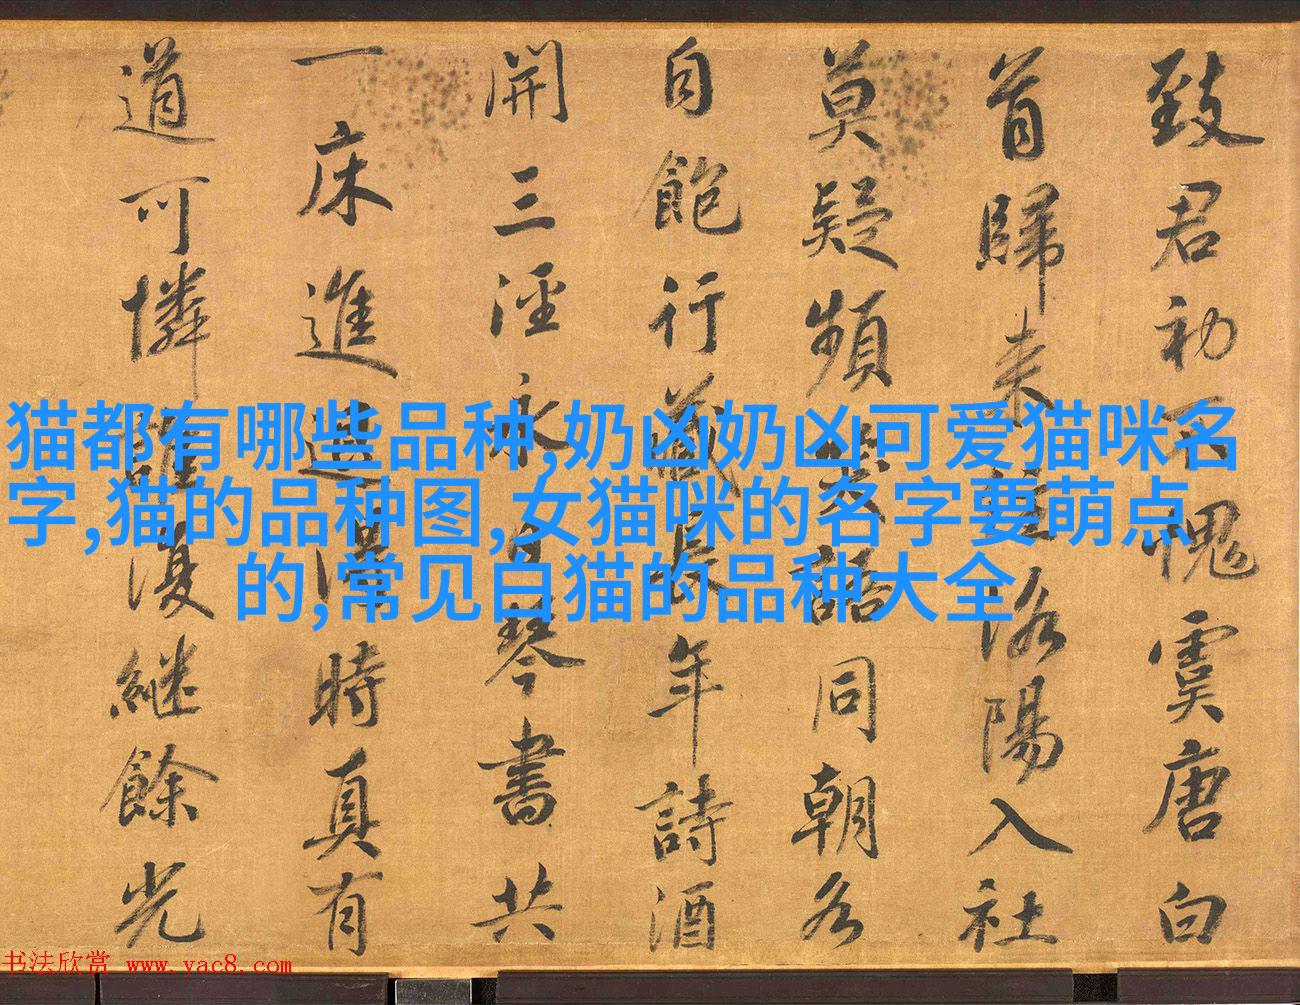 猫都有哪些品种,奶凶奶凶可爱猫咪名
字,猫的品种图,女猫咪的名字要萌点
的,常见白猫的品种大全
致君初不愧虞唐白
首歸来洛陽入社
莫疑頻笑語同朝各
自飽行藏長年詩酒
開三徑永日琴書共
一床進退得時真有
道可憐復繼餘光
书法欣赏 www.yac8.com